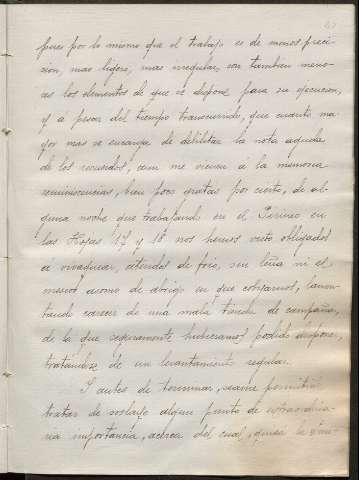 pues por lo mismo que el trabajo es de menos preci-
sion, mas ligero, mas irregular, son tambien meno-
res los elementos de que se dispone para su ejecucion,
y á pesar del tiempo transcurrido, que cuanto ma-
yor mas se encarga de debilitar la nota aguda
de los recuerdos, aun me vienen á la memoria
reminiscencias, bien poco gratas por cierto, de al-
guna noche que trabajando en el Pirineo en
las Hojas 17 y 18 nos hemos visto obligados
á vivaquear, ateridos de frio, sin leña ni el
menor asomo de abrigo en que cobijarnos, lamen-
tando carecer de una mala tienda de campaña,
de la que seguramente hubieramos podido disponer,
tratandose de un levantamiento regular.
Y antes de terminar, seame permitido
tratar de soslayo algun punto de extraordina-
ria importancia, acerca del cual, quiza la